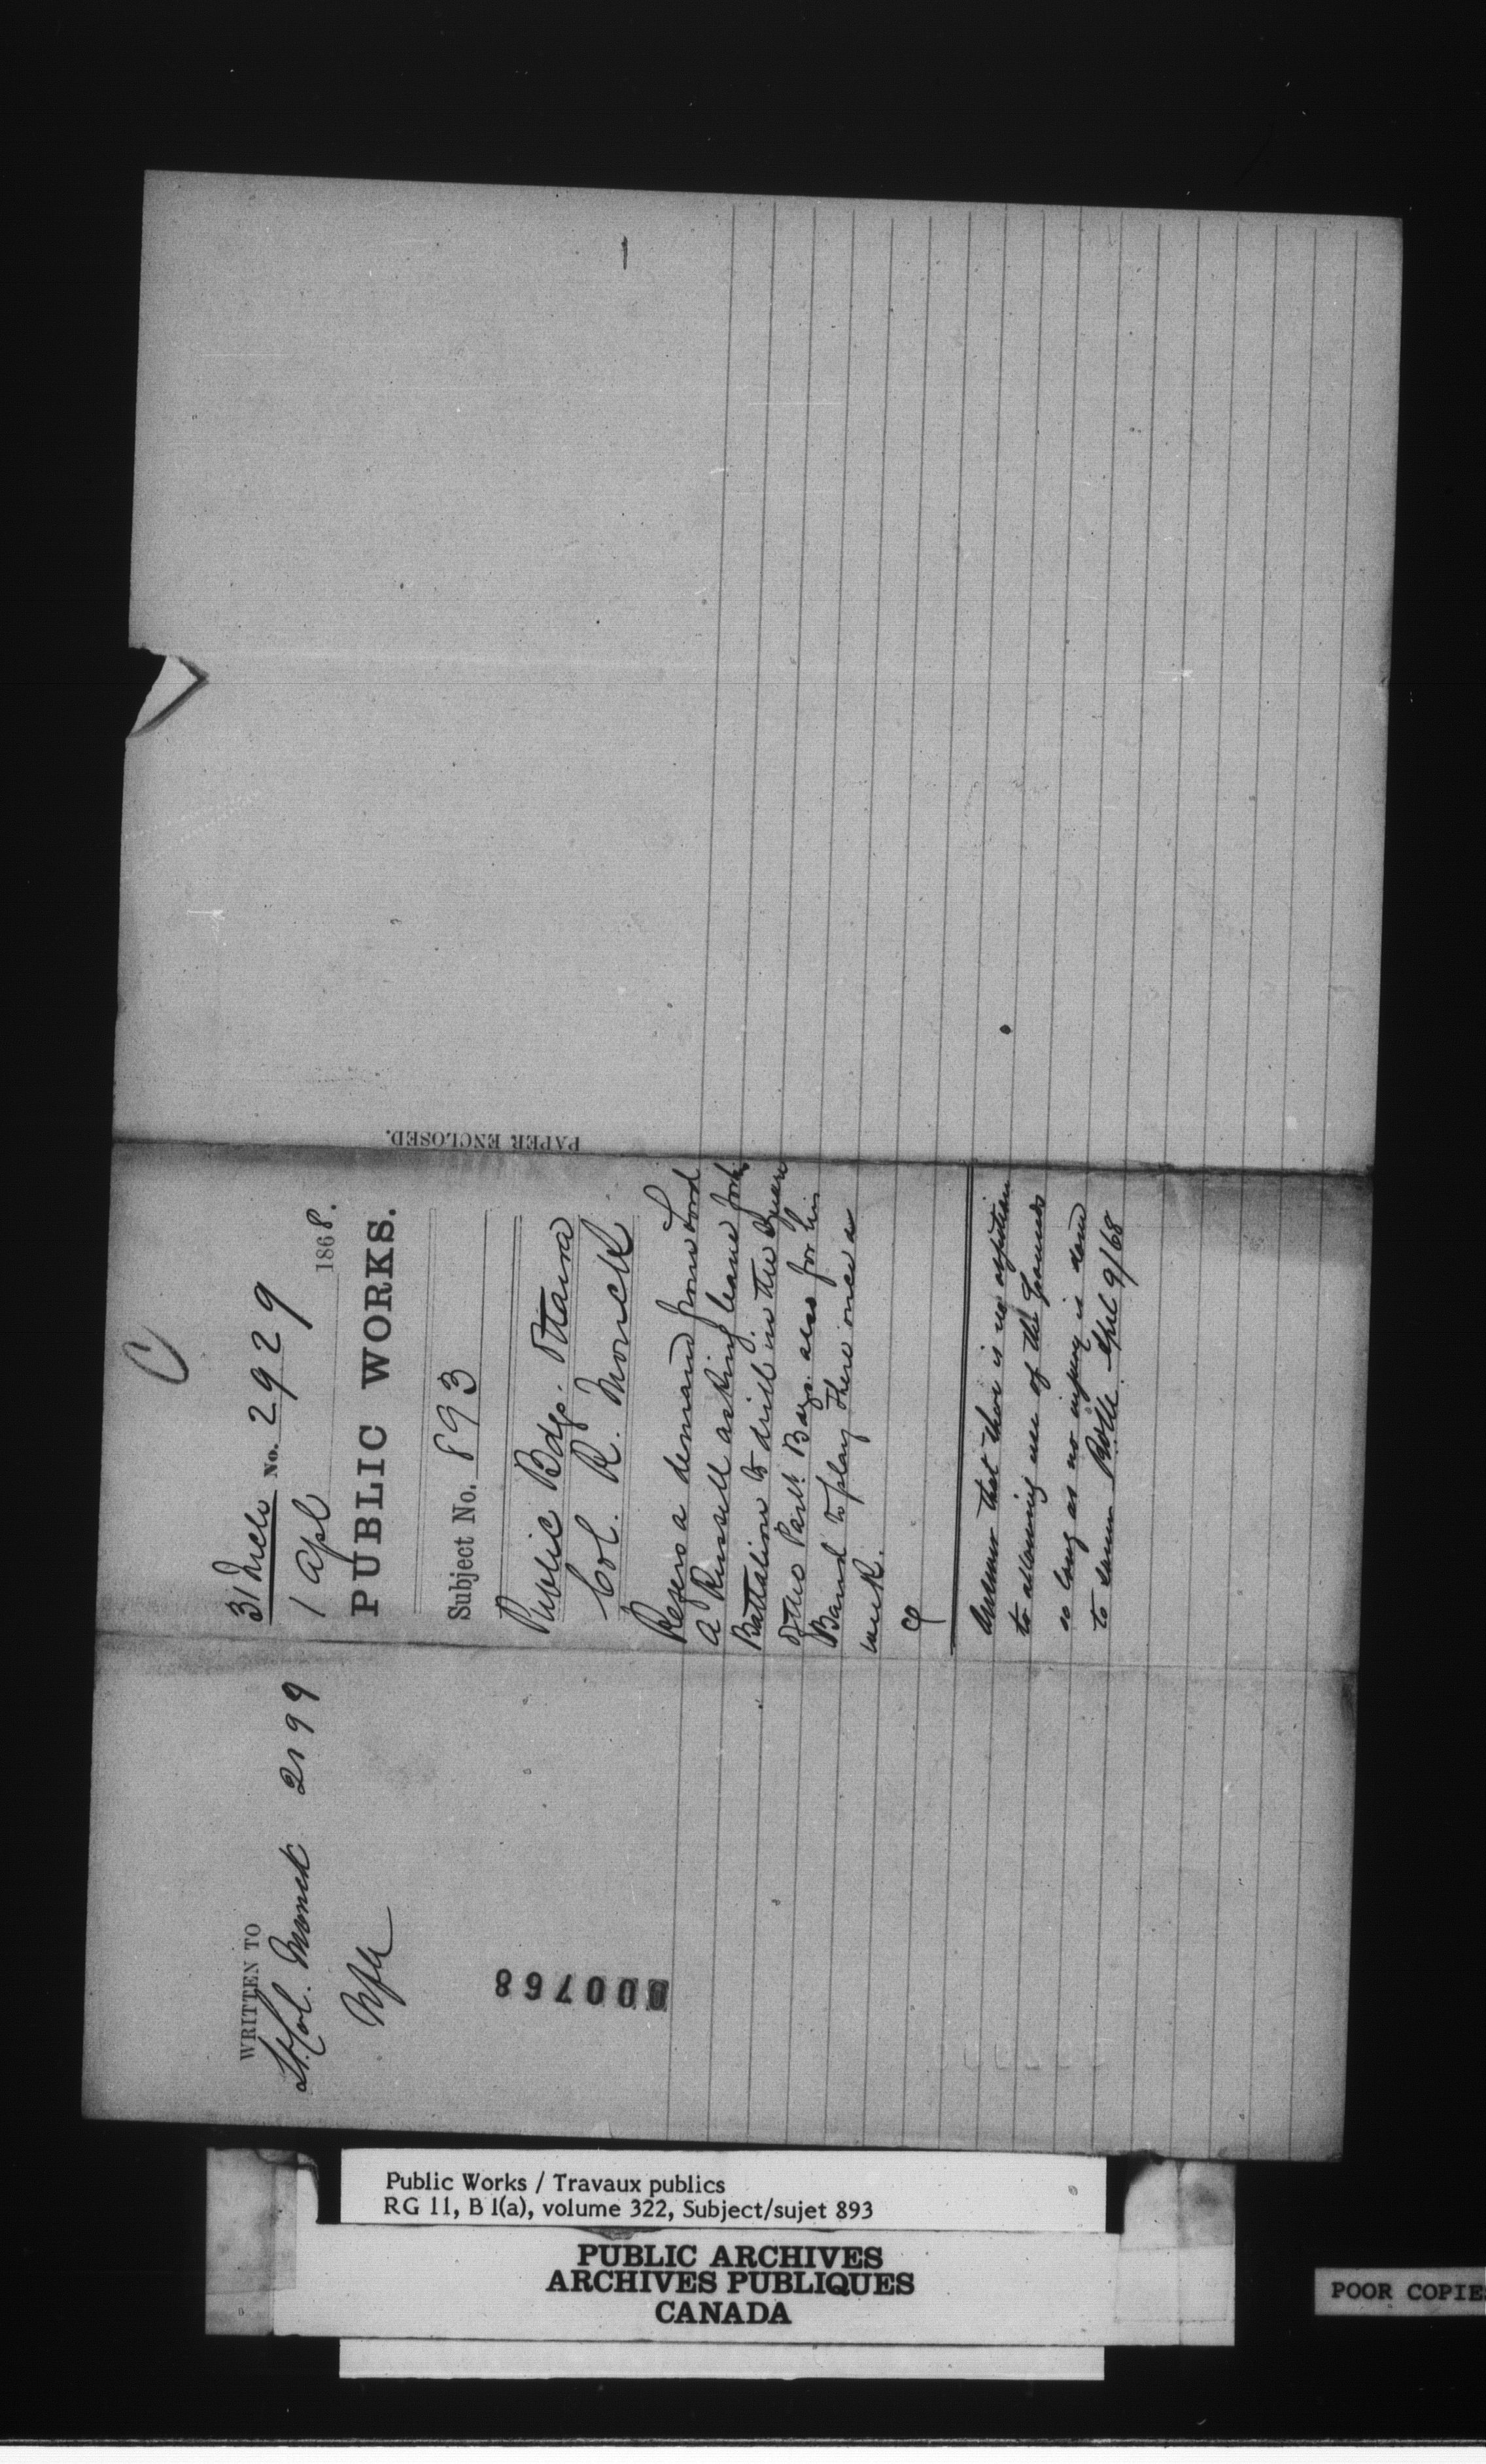 C
31 Mch No. 2929
1 Apl 1868.
PUBLIC WORKS.
Subject No. 893
Public Bdgs. Ottawa
Col. R. Monck
Refers a demand from Lord
A Russell asking leave for his
Battalion to drill in the Square
of the Parlt. Bdgs. also for his
Band to play there once a
week.
Answer that there is no objection
to allowing use of the grounds
so long as no injury is done
to same April 9/68
PAPER ENCLOSED.
WRITTEN TO
Lt. Col. Monck 2199
000768
Public Works / Travaux publics
RG 11, B 1(a), volume 322, Subject/sujet 893
PUBLIC ARCHIVES
ARCHIVES PUBLIQUES
CANADA
POOR COPIE